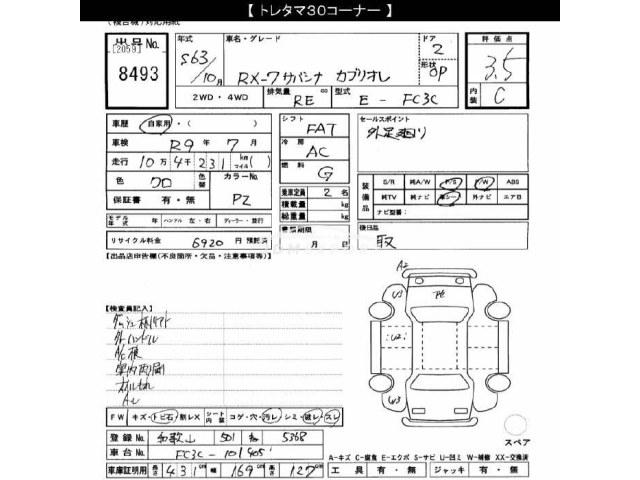 【 トレタマ30コーナー 】
(複合機)対応用紙
出品No. 年式 車名・グレード ドア 評価点
[2059] S63 2 3.5
8493 10月 RX-7 サバンナ カブリオレ 形状 OP 内装 C
2WD・4WD 排気量 RE cc 型式 E - FC3C
車歴 自家用・( ) シフト FAT セールスポイント
車検 R9年 7月 冷房 AC 外足廻り
走行 10万4千231 km マイル ( ) 燃料 G
色 クロ 色替 カラーNo. 乗車定員 2名 装備品 S/R 純A/W P/S P/W ABS
保証書 有・無 PZ 積載量 kg 純TV 純ナビ 革シート 外ナビ エアB
モデル年式 年 ハンドル 左・右 ディーラー・並行 総重量 kg ナビ型番:
リサイクル料金 6920円 預託済 月 日 後日品 取
【出品店申告欄(不良箇所・欠品・注意事項等)】
【検査員記入】
外ハンドル
FW キズ・トビ石・割レX シート内装 コゲ・穴・汚レ・シミ・破レ・スレ
登録No. 和歌山 501 5368
車台No. FC3C - 101405
車庫証明用 長さ 431cm 幅 169cm 高さ 127cm
A2
U3
U2
W3
スペア
A-キズ C-腐食 E-エクボ S-サビ U-凹ミ W-補修 XX-交換済
工具 有・無 ジャッキ 有・無